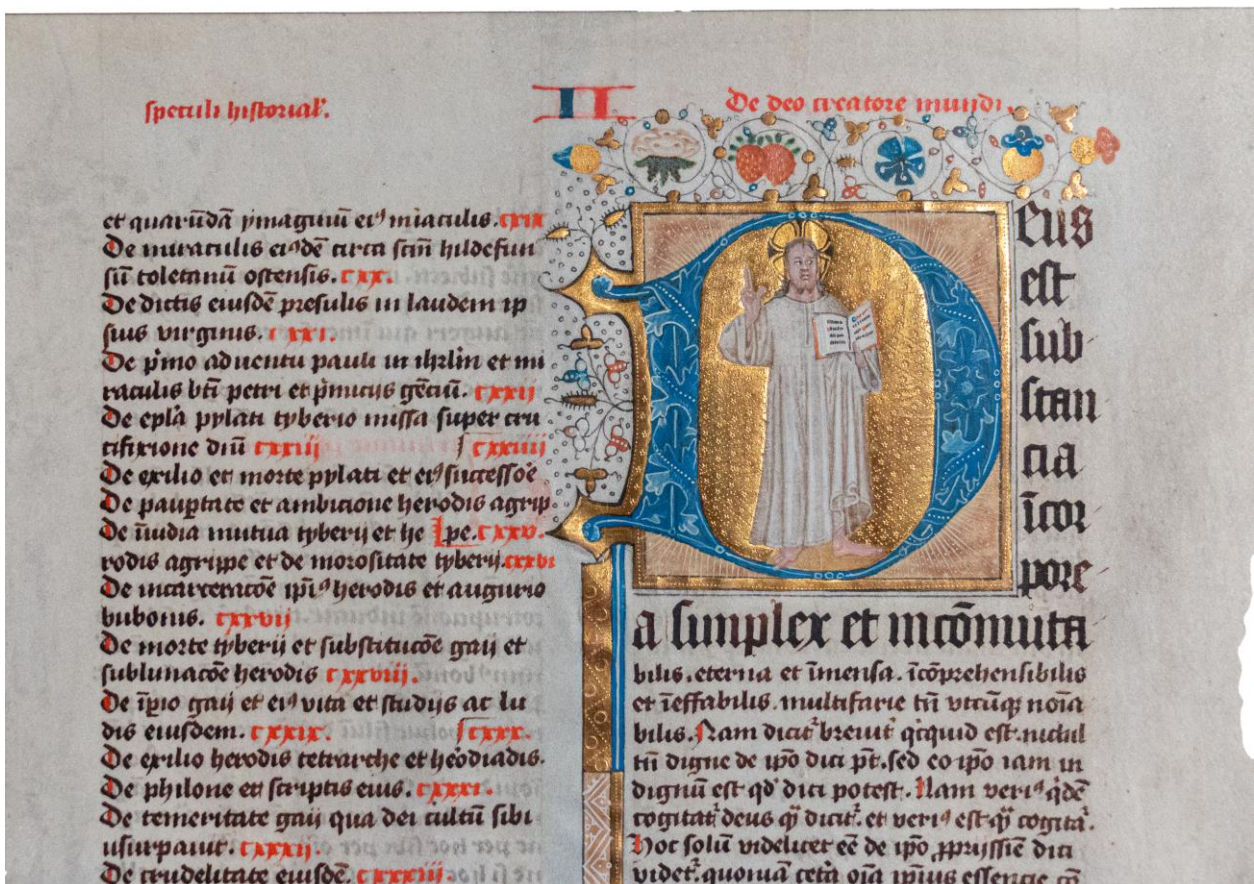 speculi historial'.
II
De deo creatore mundi.
et quarūdā ymaginū ei⁹ miaculis. cxix
De miraculis ei⁹dē circa scm̄ hildefun
sū toletanū ostensis. cxx.
De dictis eiusdē presulis in laudem ip
sius virginis. cxxi.
De p̄mo aduentu pauli in ihrlm̄ et mi
raculis bt̄i petri et p̄micijs gēciū. cxxij
De epl̄a pylati tyberio missa super cru
cifixione dn̄i cxxiij cxxiiij
De exilio et morte pylati et ei⁹ successoē
De paup̄tate et ambicione herodis agrip
De īuidia mutua tyberij et he pe. cxxv.
rodis agrippe et de morositate tyberij. cxxvi
De incarceracōe ip̄i⁹ herodis et augurio
bubonis. cxxvij
De morte tyberij et substitucōe gaij et
sublimacōe herodis cxxviij.
De īp̄io gaij et ei⁹ vita et studijs ac lu
dis eiusdem. cxxix. cxxx.
De exilio herodis tetrarche et heōdiadis.
De philone et scriptis eius. cxxxi.
De temeritate gaij qua dei cultū sibi
usurpauit. cxxxij.
De crudelitate eiusdē. cxxxiij.
Deus
est
sub
stan
cia
īcor
pore
a simplex et incōmuta
bilis. eterna et īmensa. īcōprehensibilis
et īeffabilis. multifarie tn̄ vtcūq; noīa
bilis. Nam dicit breuit̄ q̇cquid est. nichil
tn̄ digne de ip̄o dici pt̄. sed eo ip̄o iam in
dignū est qd' dici potest. Nam veri⁹ q̇dē
cogitat̄ deus q̄ dicit̄. et veri⁹ est q̄ cogitat̄.
Hoc solū videlicet eē de ip̄o p̱prijssīe dici
videt̄. quoniā cet̄a oīa ip̄ius essencie cō